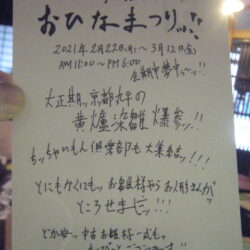 おひなまつりッ!!
2021年2月22日(月)〜3月12日(金)
AM11:00〜PM6:00
会期中無休〜ッ!!
大正期ッ京都丸平の
黄櫨染雛 爆参ッ!!
ちッちゃいもん倶楽部も大集合ッ!!!
とにもかくにもッお雛様やらお人形さんが
ところせましッ!!!
どか〜ッ 中古お雛様一式も